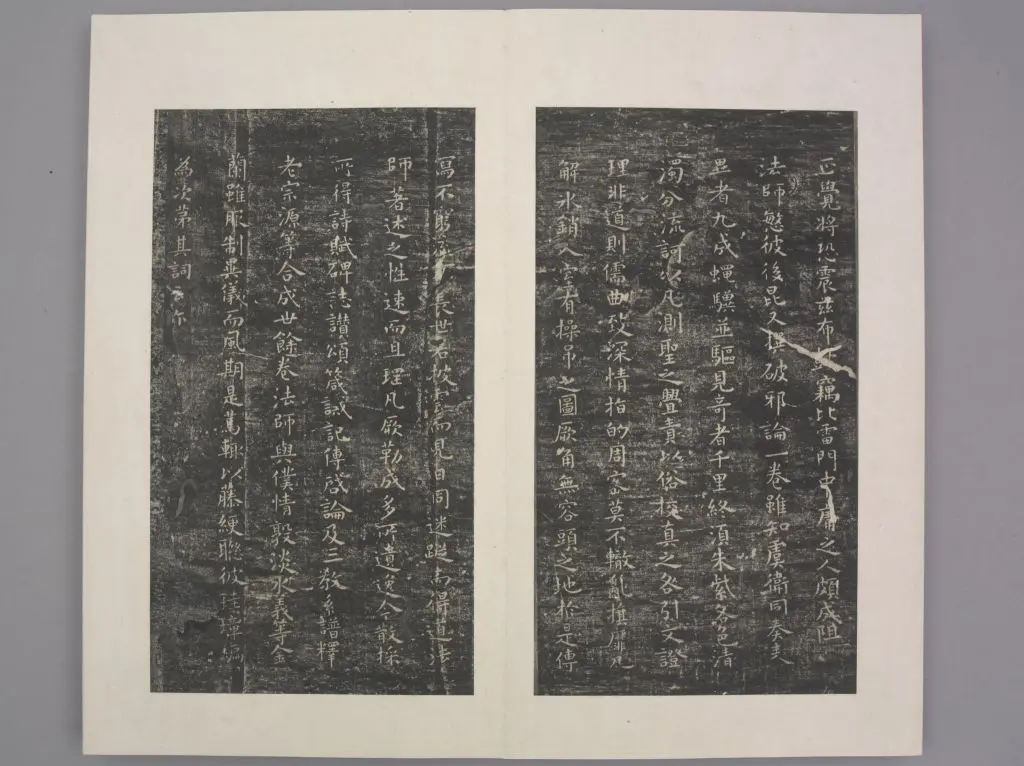 正覺將恐震茲布鼓竊比雷門中庸之人頗成阻
法師愍彼後昆又撰破邪論一卷雖知虞衛同奏表
異者九成蠅驥並駈見奇者千里終須朱紫各色清
濁分流詎以凡測聖之舋責以俗校真之咎引文證
理非道則儒曲致深情指的周密莫不轍亂旗靡瓦
解氷銷入室有操矛之圖厥角無容頭之地於是傳
寫不窮 長世若披雲而見日同迷蹤而得道法
師著述之性速而且理凡厥勒成多所遺逸今散採
所得詩賦碑誌讚頌箴誡記傳啓論及三教系譜釋
老宗源等合成世餘卷法師與僕情敦淡水義等金
蘭雖服制異儀而風期是篤輒以藤綆聯彼珪璋編
為次第其詞云尔